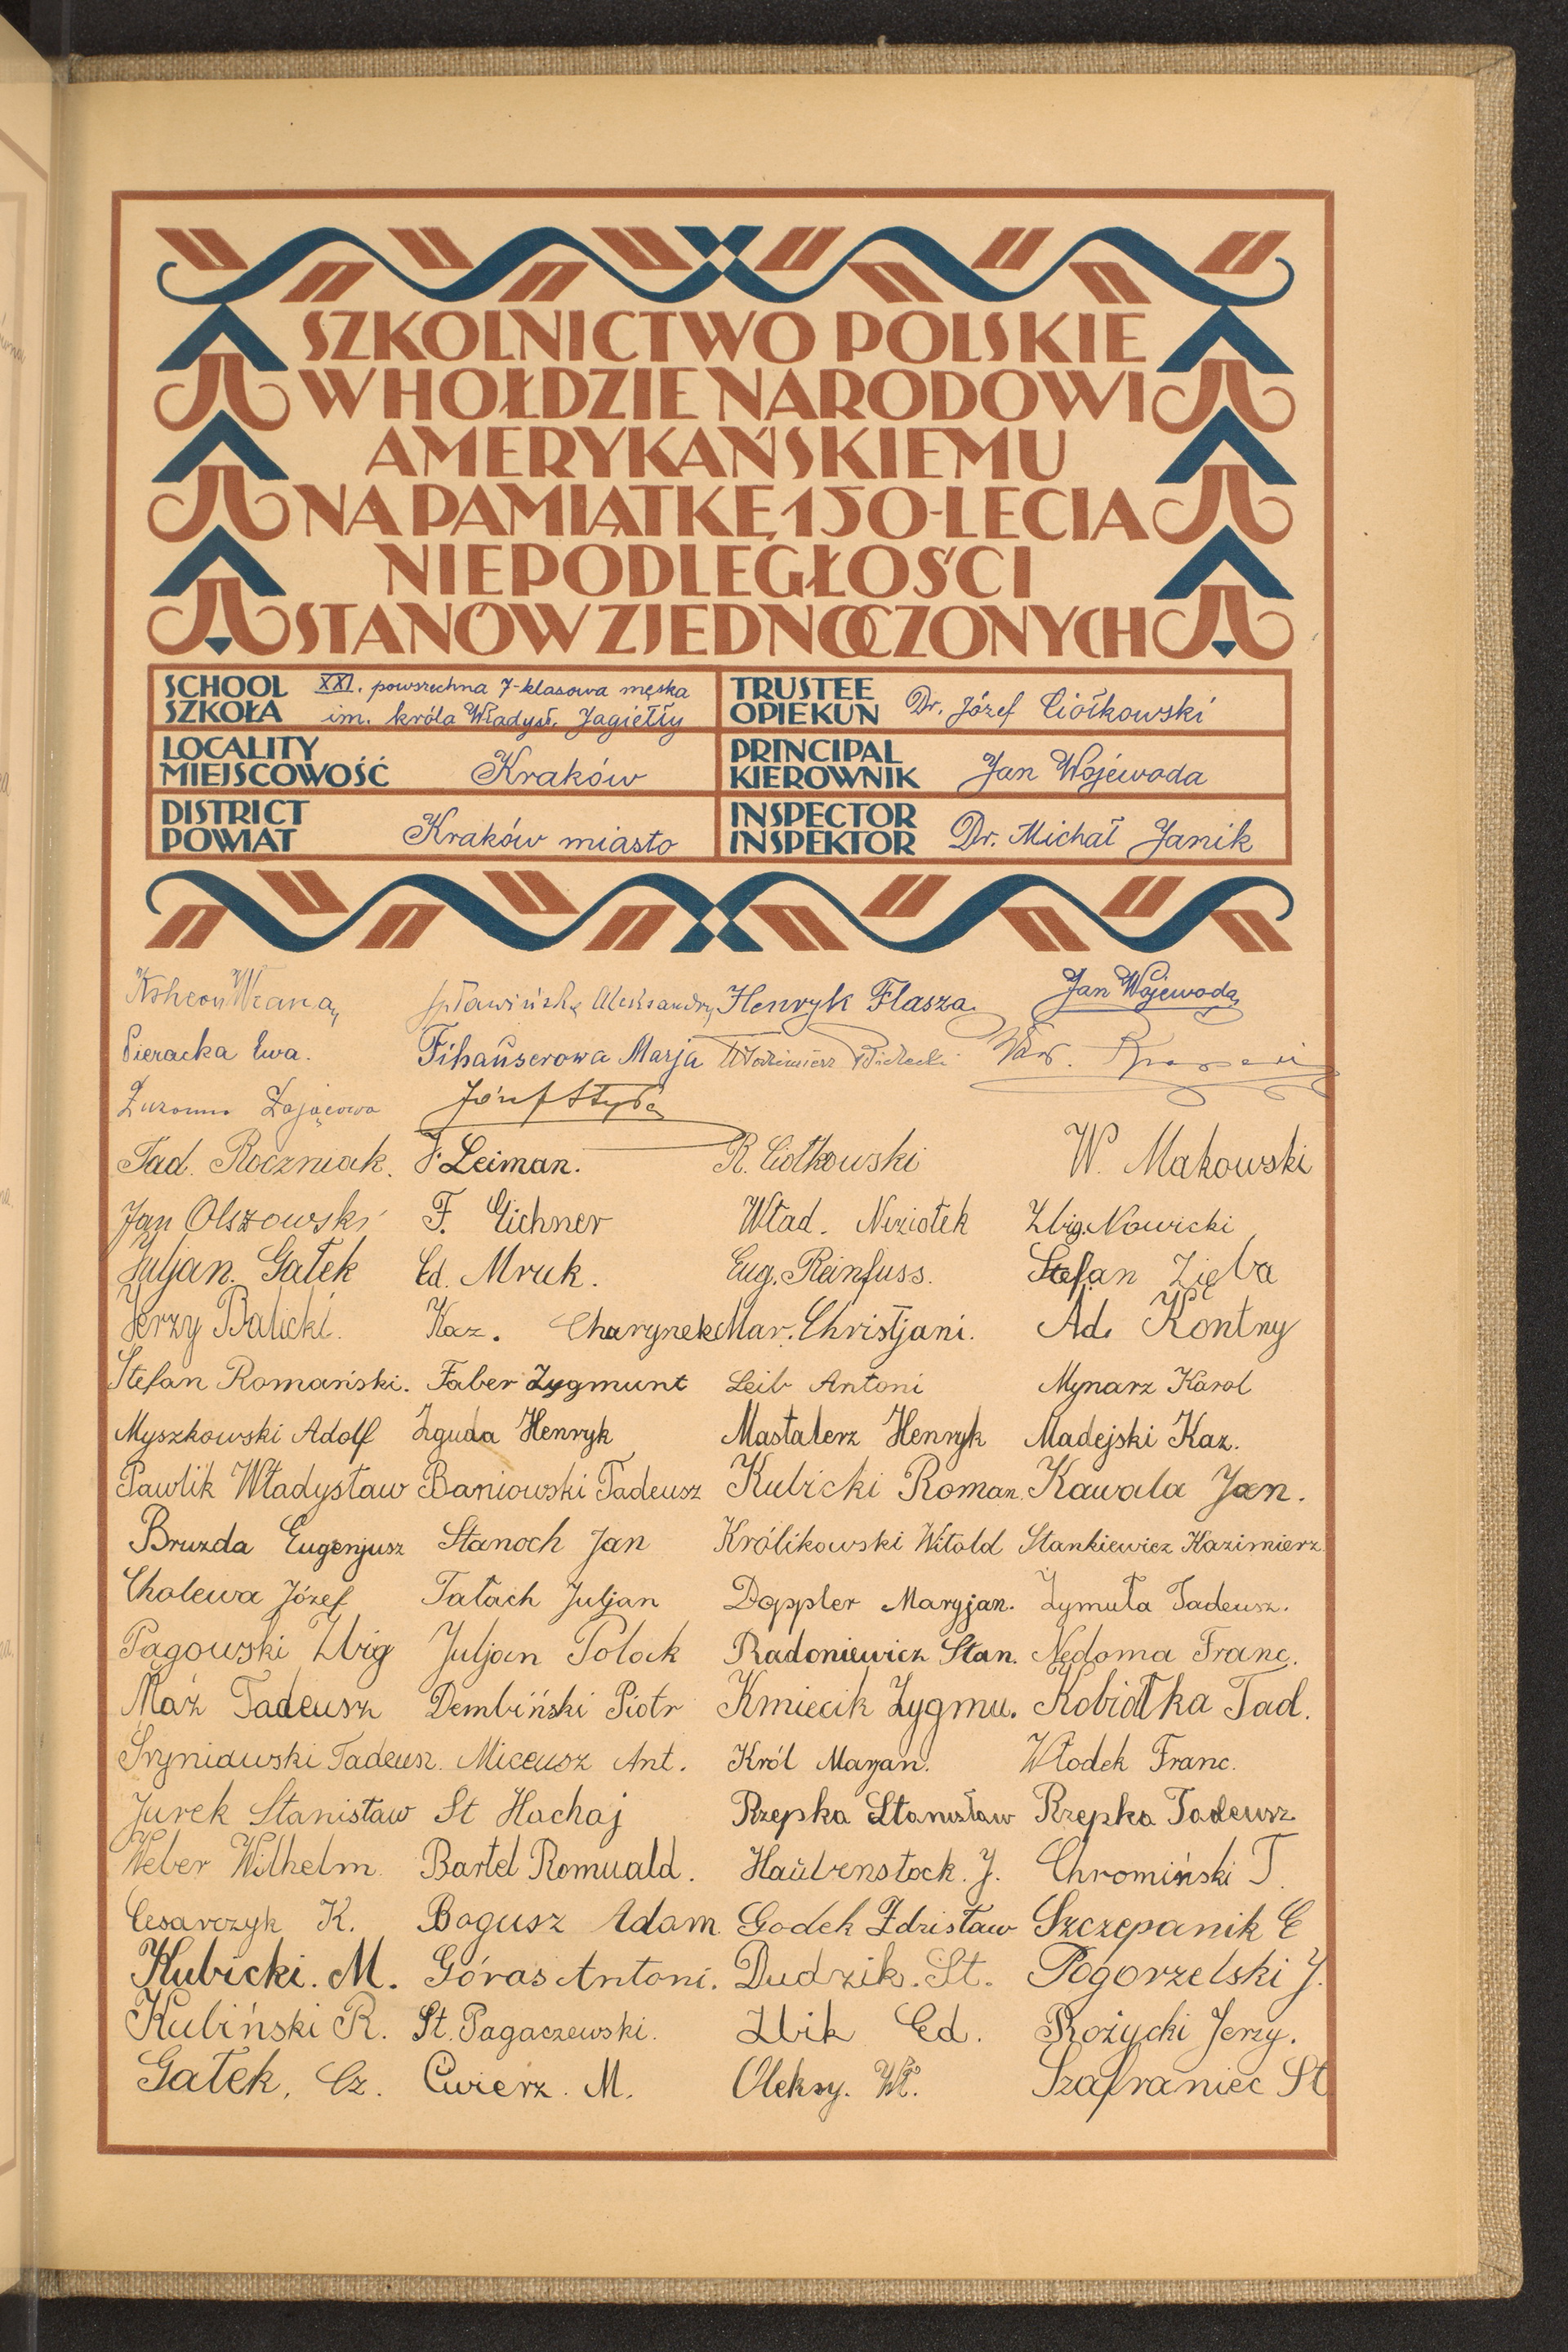 SZKOLNICTWO POLSKIE
W HOŁDZIE NARODOWI
AMERYKAŃSKIEMU
NA PAMIĄTKĘ 150-LECIA
NIEPODLEGŁOŚCI
STANÓW ZJEDNOCZONYCH
SCHOOL SZKOŁA XXI. powszechna 7-klasowa męska im. króla Władysł. Jagiełły
TRUSTEE OPIEKUN Dr. Józef Ciołkowski
LOCALITY MIEJSCOWOŚĆ Kraków
PRINCIPAL KIEROWNIK Jan Wojewoda
DISTRICT POWIAT Kraków miasto
INSPECTOR INSPEKTOR Dr. Michał Janik
Henryk Flasza Jan Wojewoda
Pieracka Ewa. Fihauserowa Marja Włodzimierz
Zającowa Józef Styła
Tad. Roczniak. F. Leiman. R. Ciołkowski W. Makowski
Jan Olszowski F. Eichner Wład. Niziołek Zbig. Nowicki
Juljan. Gałek Ed. Mruk. Eug. Reinfuss. Stefan Zięba
Jerzy Balicki. Kaz. Charynek Mar. Christjani. Ad. Kontny
Stefan Romański. Faber Zygmunt Leib Antoni Mynarz Karol
Myszkowski Adolf Zguda Henryk Mastalerz Henryk Madejski Kaz.
Pawlik Władysław Baniowski Tadeusz Kubicki Roman. Kawala Jan.
Bruzda Eugenjusz Stanoch Jan Królikowski Witold Stankiewicz Kazimierz
Cholewa Józef Tatach Juljan Doppler Maryjan. Zymuła Tadeusz.
Pągowski Zbig Juljan Polack Radoniewicz Stan. Nędoma Franc.
Maź Tadeusz Dembiński Piotr Kmiecik Zygmu. Kobiałka Tad.
Tadeusz. Miceusz Ant. Król Maryan. Włodek Franc.
Jurek Stanisław St Hachaj Rzepka Stanisław Rzepka Tadeusz
Weber Wilhelm Bartel Romuald. Haubenstock. J. Chromiński T.
Cesarczyk K. Bogusz Adam. Godek Zdzisław Szczepanik E
Kubicki. M. Góras Antoni. Dudzik. St. Pogorzelski J.
Kubiński R. St. Pagaczewski. Zbik Ed. Rożycki Jerzy.
Gałek, Cz. Ćwierz. M. Oleksy. Wł. Szafraniec St